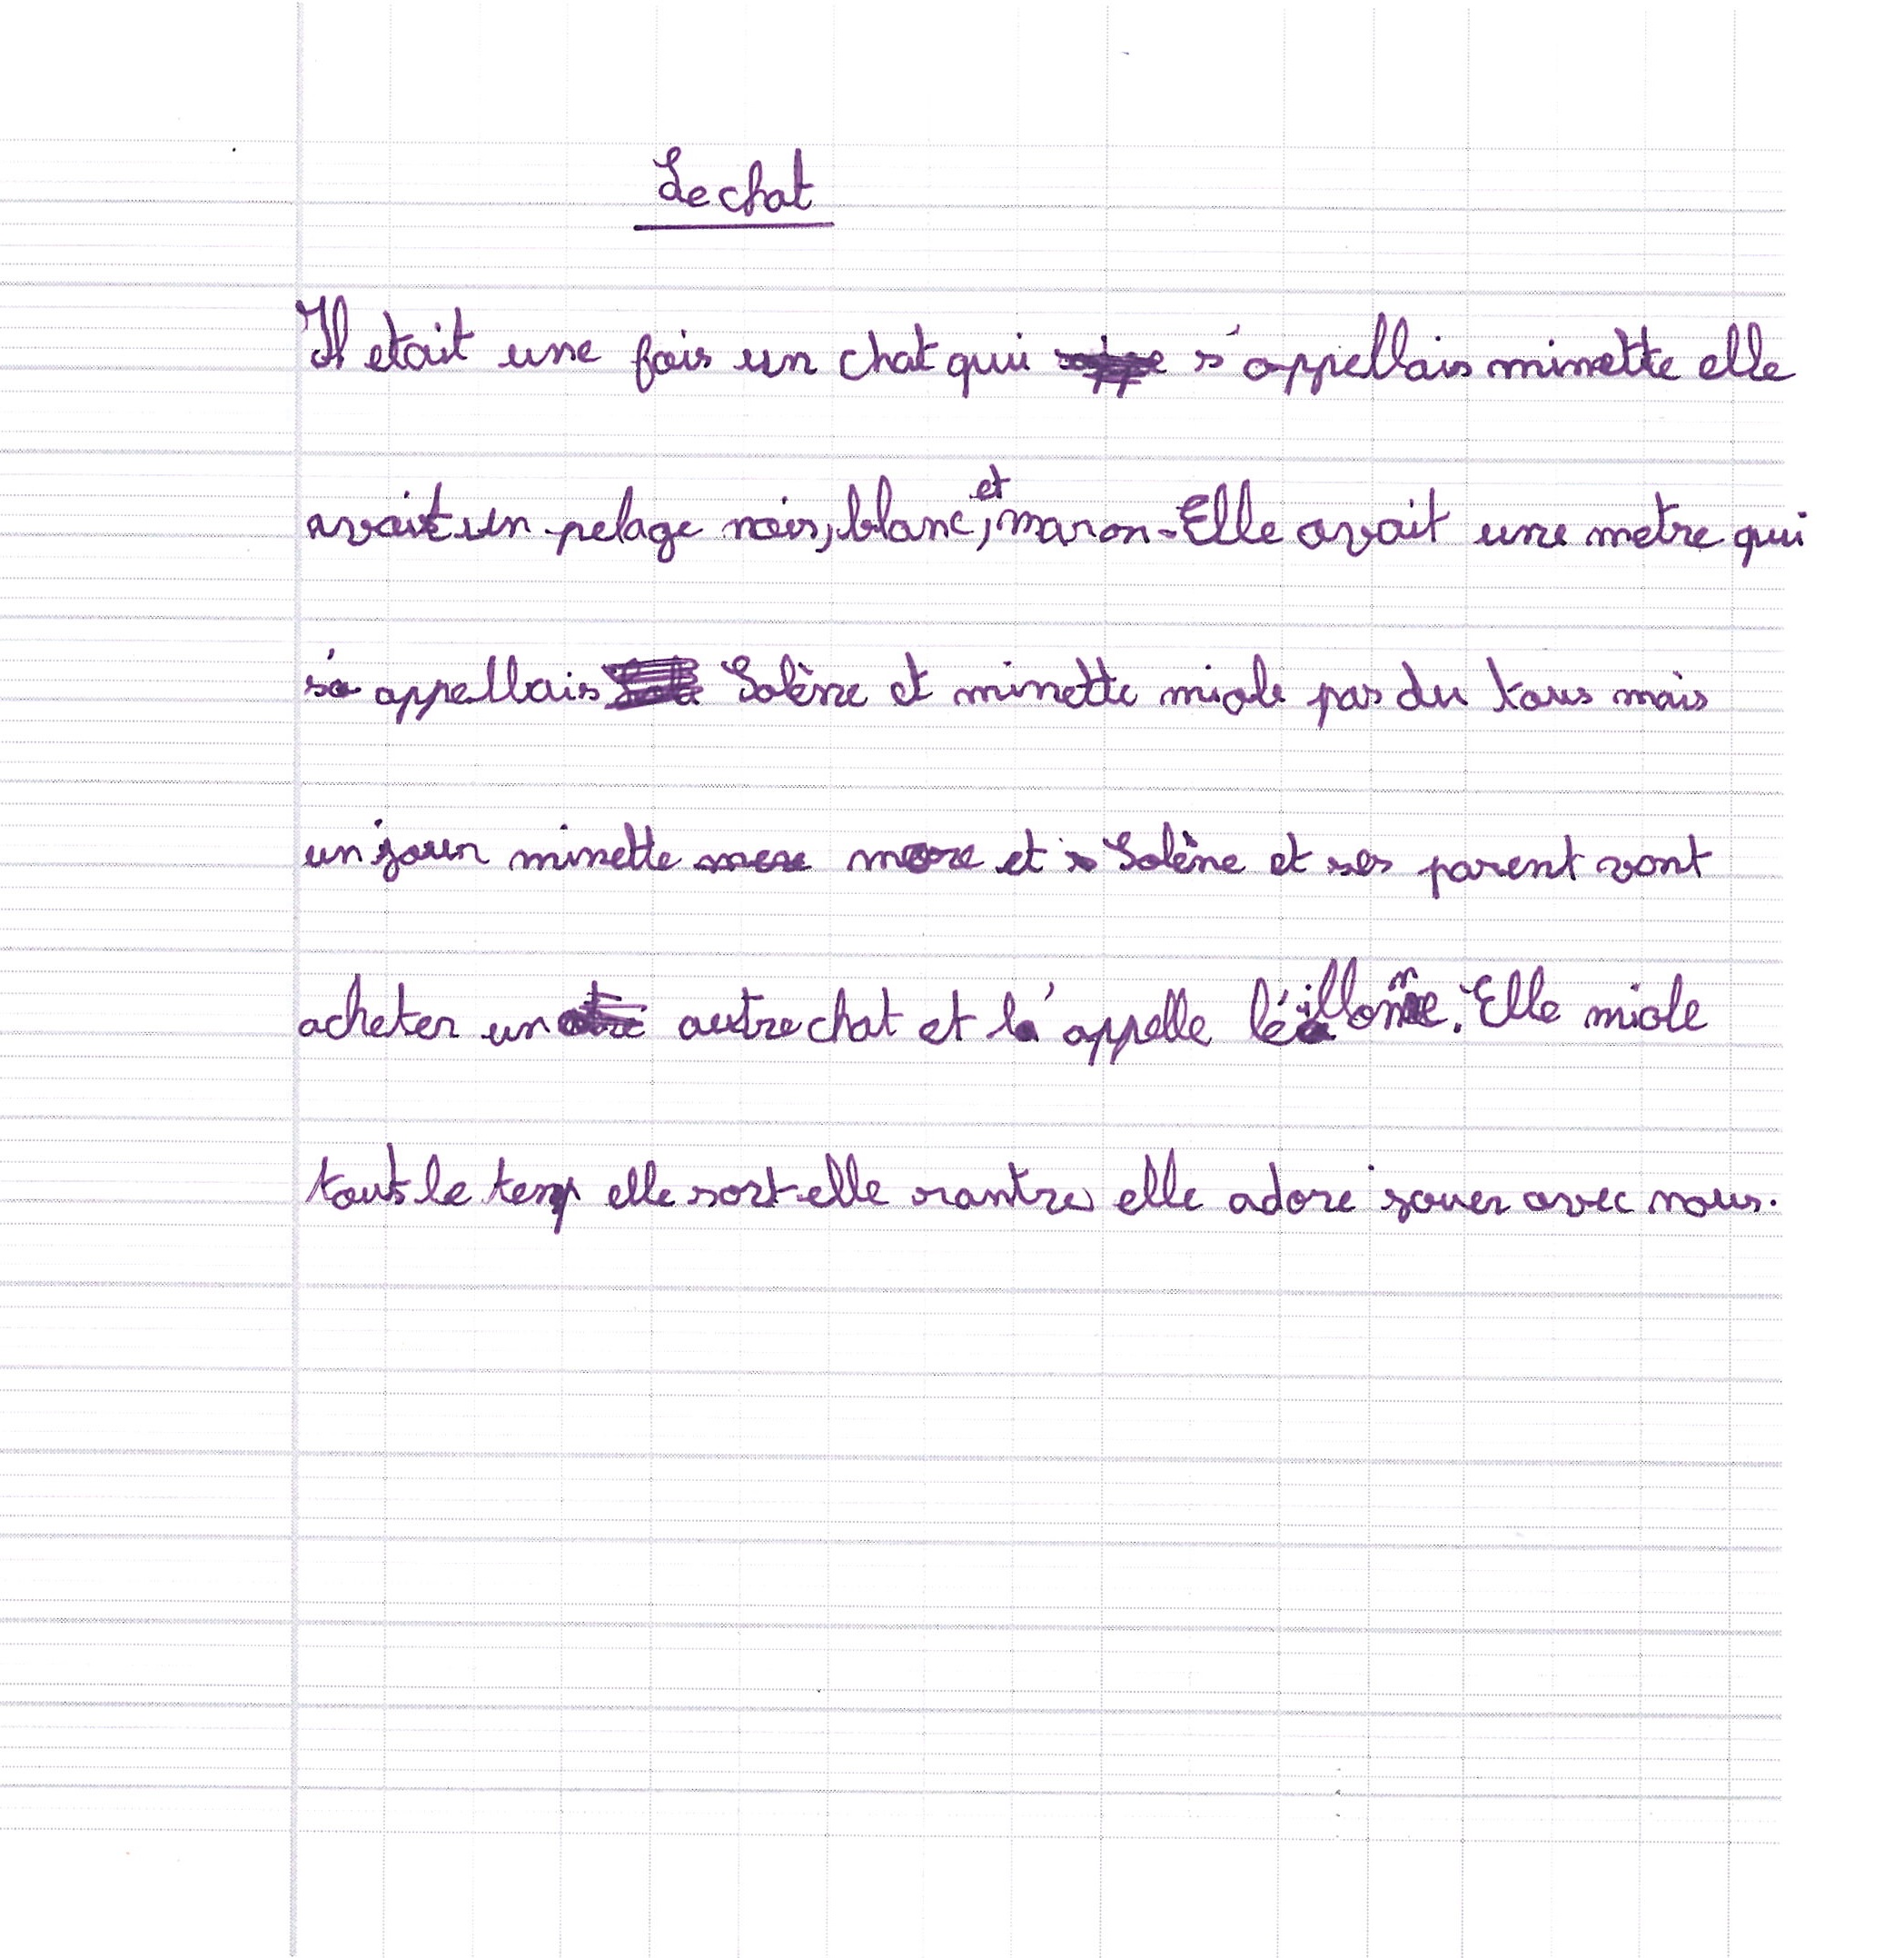 Le chat
Il etait une fois un chat qui s'appellais minette elle
avait un pelage noir, blanc, et maron. Elle avait une metre qui
s'appellais Solène et minette miole pas du tous mais
un jour minette more et Solène et ses parent vont
acheter un autre chat et l'appelle léillonne. Elle miole
tout le temp elle sort elle rantre elle adore jouer avec nous.